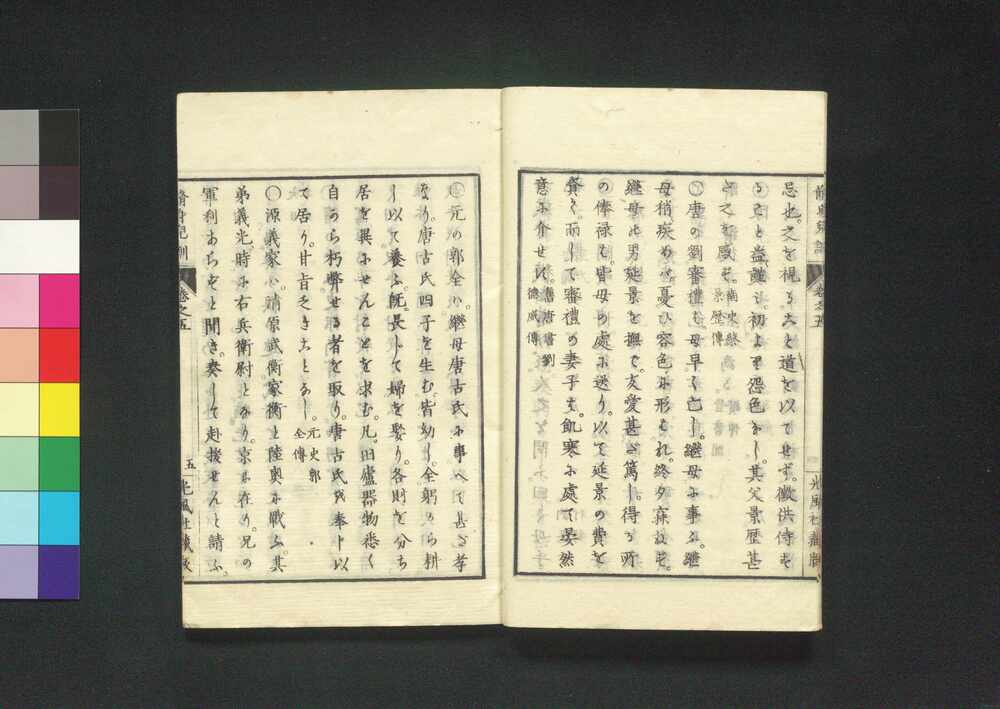 忌也。之を視ること道を以てせず。微供侍を
ること益謹む。初よりて怨色なし。其父景歴甚
之を感ず。南史蔡
景歴傳
○唐の劉審禮も母早く亡し。繼母に事ふ。繼
母稍疾めバ。憂ひ容色に形ハれ。終夕寐ねず。
繼母の男延景を撫で友愛甚ゞ篤し。得る所
の俸禄ハ。皆母の處に送り。以て延景の費を
資く。而して審禮の妻子ハ。飢寒に處て晏然
意に介せず。舊唐書劉
德威傳
卷之五
光風社藏版
○元の郭全ハ。繼母唐古氏に事へて甚ゞ孝
なり。唐古氏四子を生む。皆幼し。全躬から耕
し以て養ふ。既長じて婦を娶り。各財を分ち
居を異にせんことを求む。凡。田廬器物悉く
自から朽弊せる者を取り。唐古氏を奉じ以
て居り。甘旨乏きことなし。元史郭
全傳
○源義家ハ。清原武衡家衡と陸奥に戰ふ。其
弟義光時に右兵衛尉となり。京に在り。兄の
軍利あらずと聞き。奏して赴援せんと請ふ。
脩身児訓
卷之五
五
光風社藏版